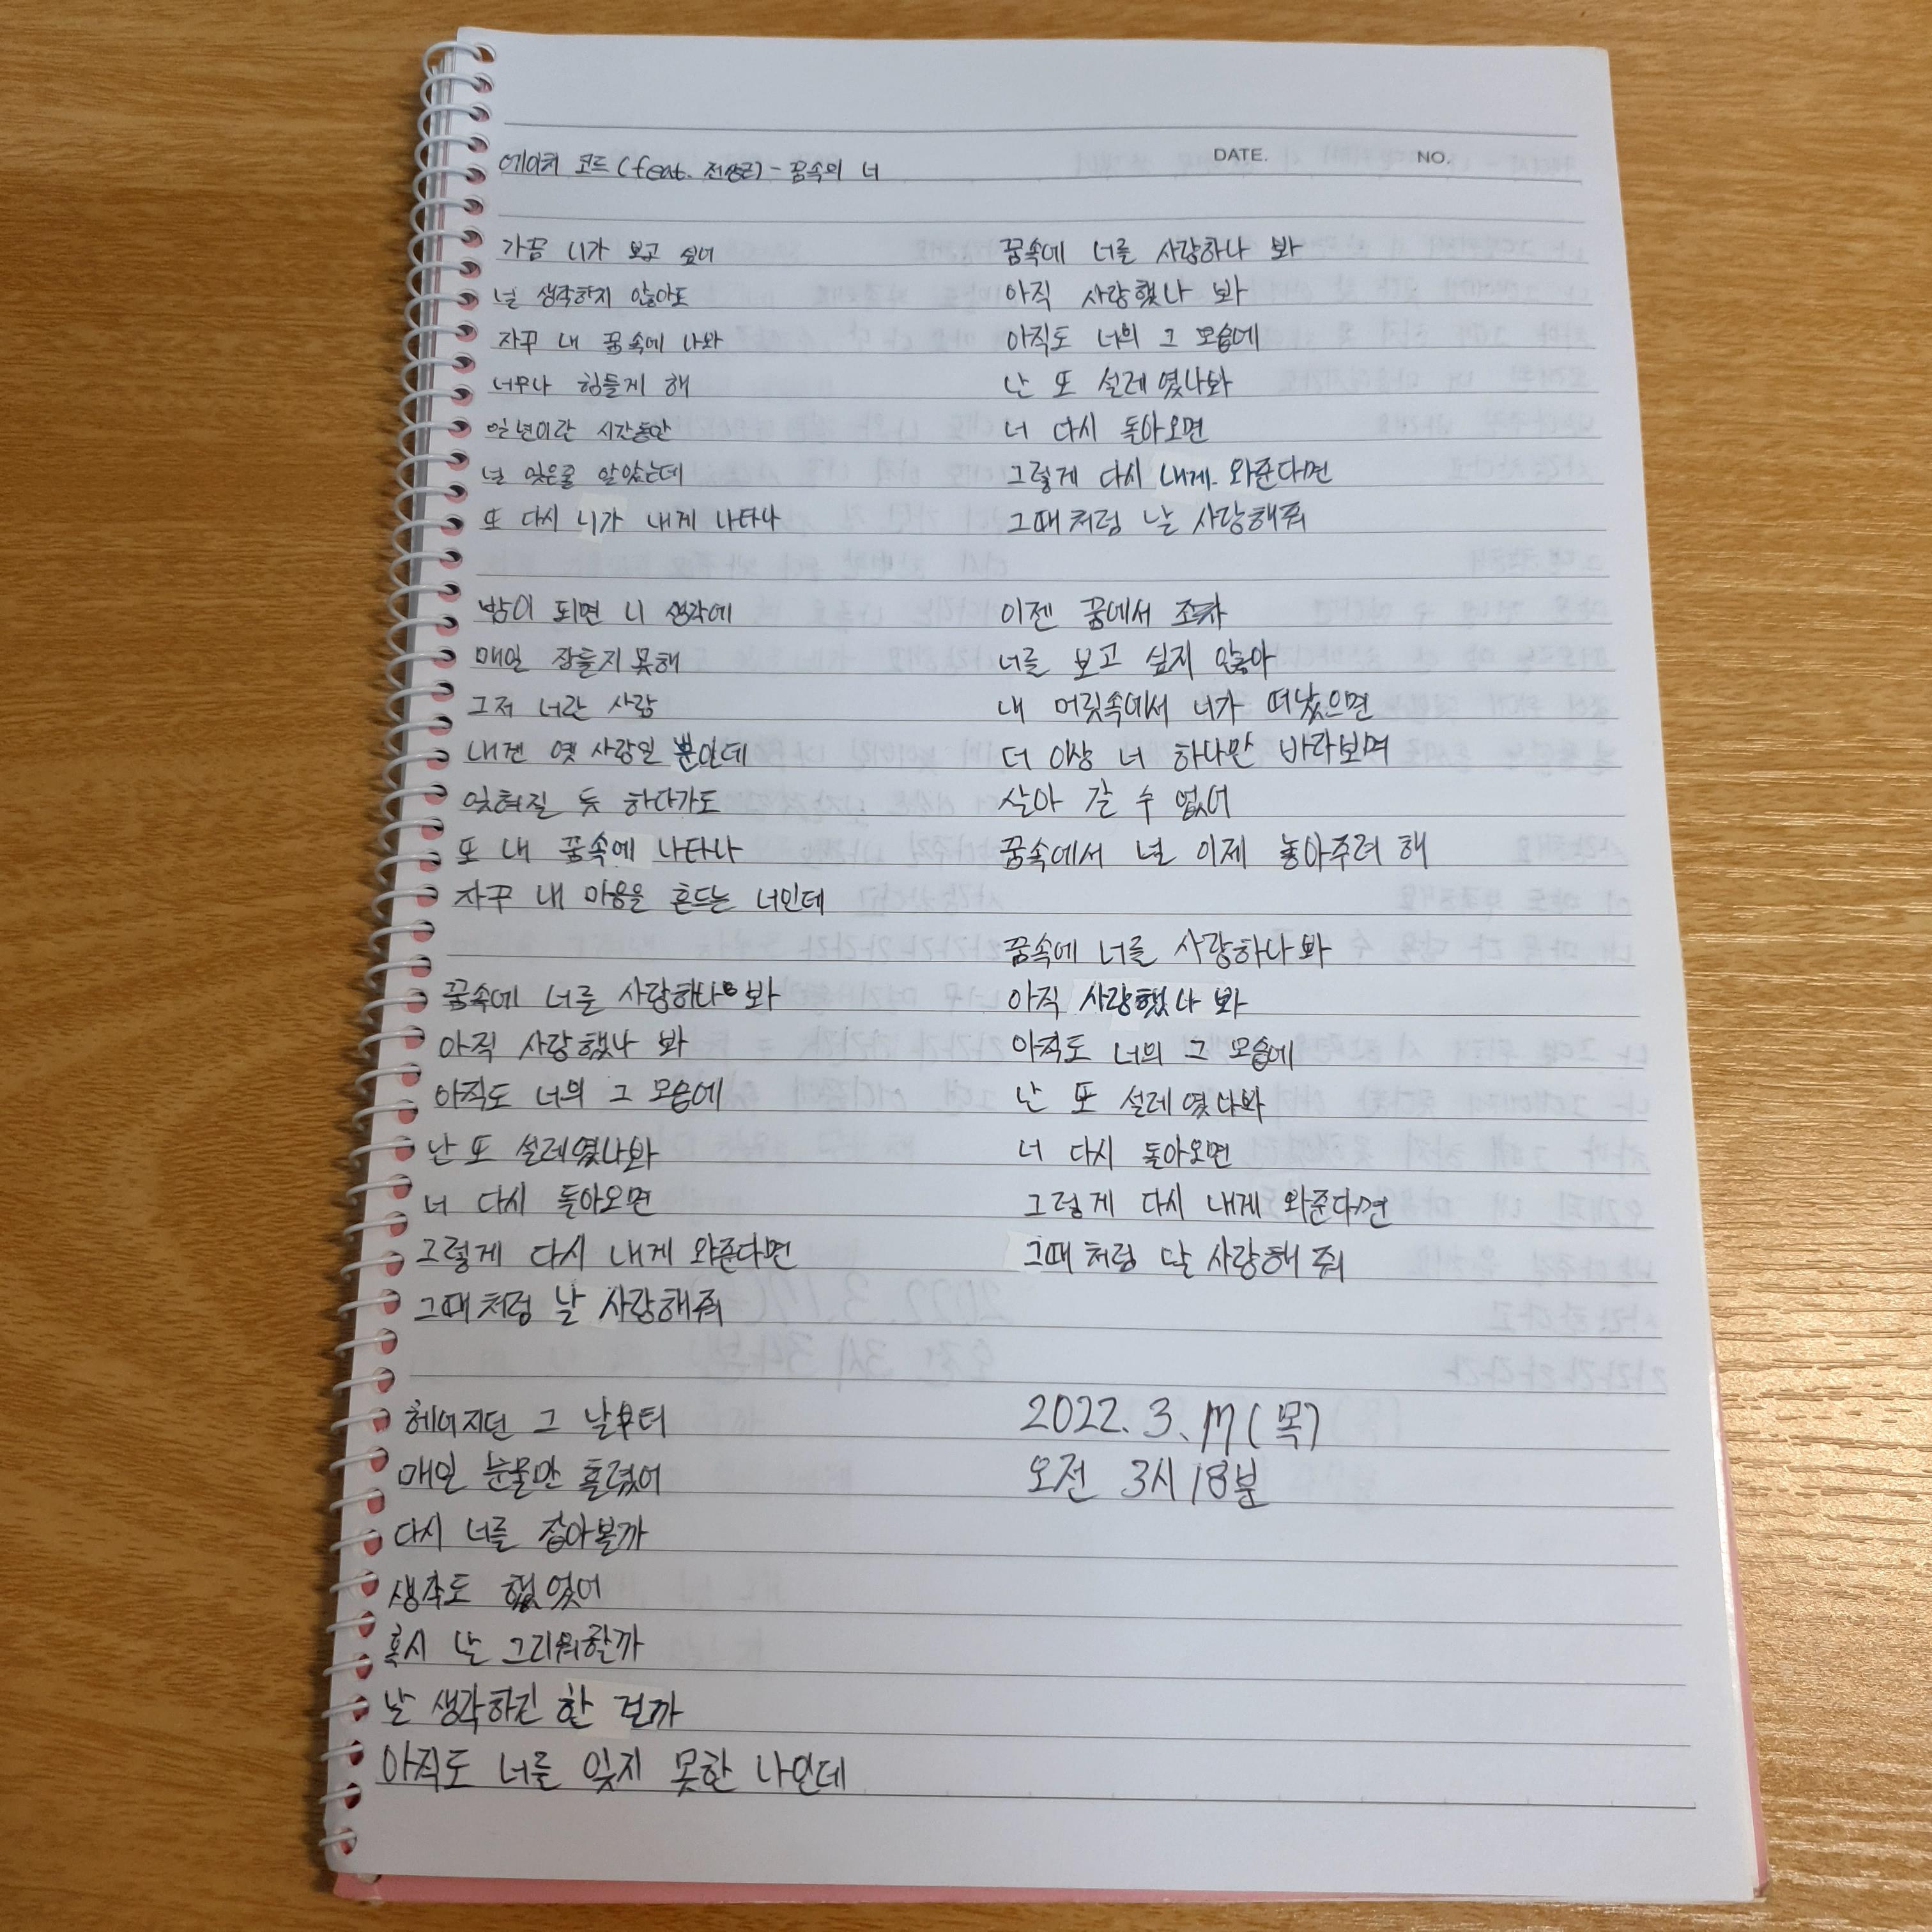 에이쳐 코드(feat. 전상근) - 꿈속의 너
DATE.
NO.
가끔 니가 보고 싶어
널 생각하지 않아도
자꾸 내 꿈속에 나와
너무나 힘들게 해
일년이란 시간동안
널 잊은줄 알았는데
또 다시 니가 내게 나타나
밤이 되면 니 생각에
매일 잠들지 못해
그저 너란 사람
내겐 옛 사랑일 뿐인데
잊혀질 듯 하다가도
또 내 꿈속에 나타나
자꾸 내 마음을 흔드는 너인데
꿈속에 너를 사랑하나 봐
아직 사랑했나 봐
아직도 너의 그 모습에
난 또 설레였나봐
너 다시 돌아오면
그렇게 다시 내게 와준다면
그때처럼 날 사랑해줘
헤어지던 그 날부터
매일 눈물만 흘렸어
다시 너를 잡아볼까
생각도 했었어
혹시 날 그리워할까
날 생각하긴 한 걸까
아직도 너를 잊지 못한 나인데
꿈속에 너를 사랑하나 봐
아직 사랑했나 봐
아직도 너의 그 모습에
난 또 설레였나봐
너 다시 돌아오면
그렇게 다시 내게 와준다면
그때처럼 날 사랑해줘
이젠 꿈에서 조차
너를 보고 싶지 않아
내 머릿속에서 너가 떠났으면
더 이상 너 하나만 바라보며
살아 갈 수 없어
꿈속에서 널 이제 놓아주려 해
꿈속에 너를 사랑하나봐
아직 사랑했나 봐
아직도 너의 그 모습에
난 또 설레였나봐
너 다시 돌아오면
그렇게 다시 내게 와준다면
그때처럼 날 사랑해 줘
2022. 3. 17(목)
오전 3시 18분